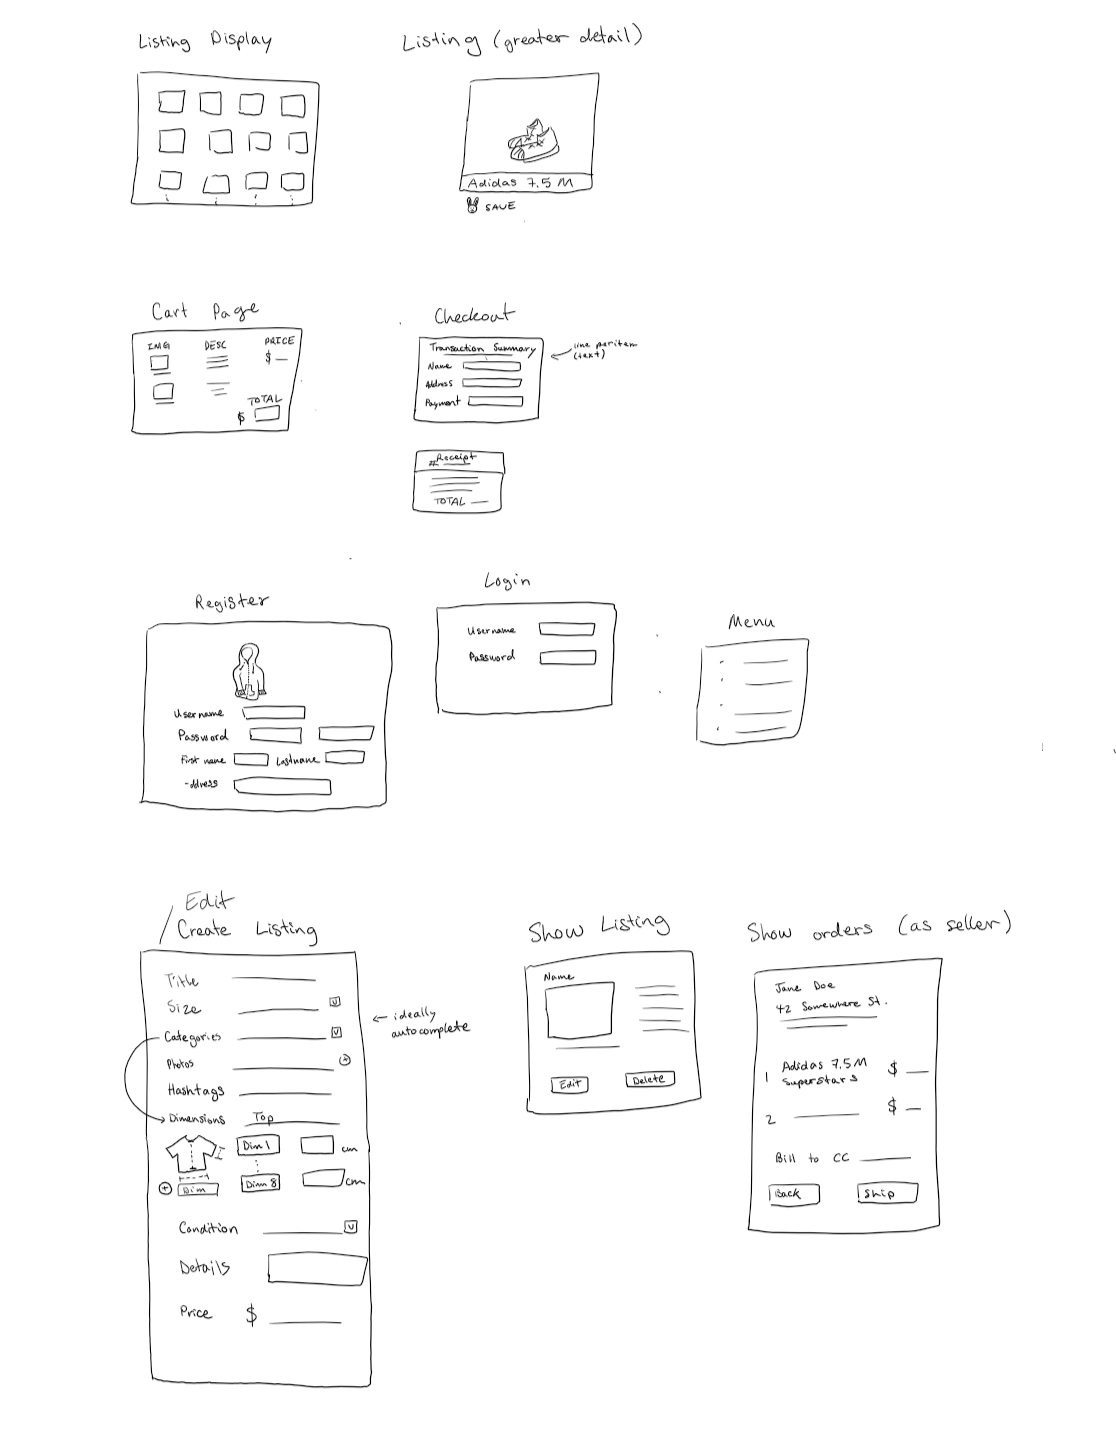 Listing Display
Listing (greater detail)
Adidas 7.5 M
SAVE
Cart Page
IMG DESC PRICE
$
TOTAL
$
Checkout
Transaction Summary
Name
Address
Payment
line per item
(text)
#Receipt
TOTAL
Register
Username
Password
First name Lastname
-ddress
Login
Username
Password
Menu
Edit
/ Create Listing
Title
Size
Categories
Photos
Hashtags
Dimensions Top
Dim 1 cm
Dim Dim 8 cm
Condition
Details
Price $
← ideally
autocomplete
Show Listing
Name
Edit Delete
Show orders (as seller)
Jane Doe
42 Somewhere St.
1 Adidas 7.5M $
Superstars
2 $
Bill to CC
Back Ship